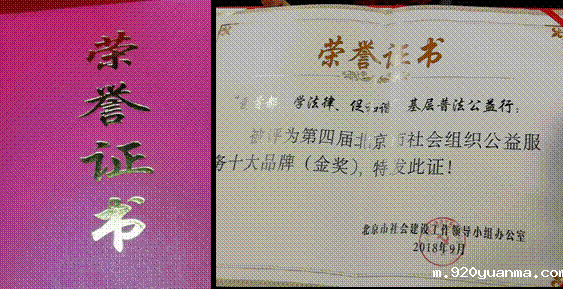 荣
誉
证
书
荣誉证书
学法律、促和谐”基层普法公益行：
被评为第四届北京市社会组织公益服
务十大品牌（金奖），特发此证！
北京市社会建设工作领导小组办公室
2018年9月
m.920yuanma.com